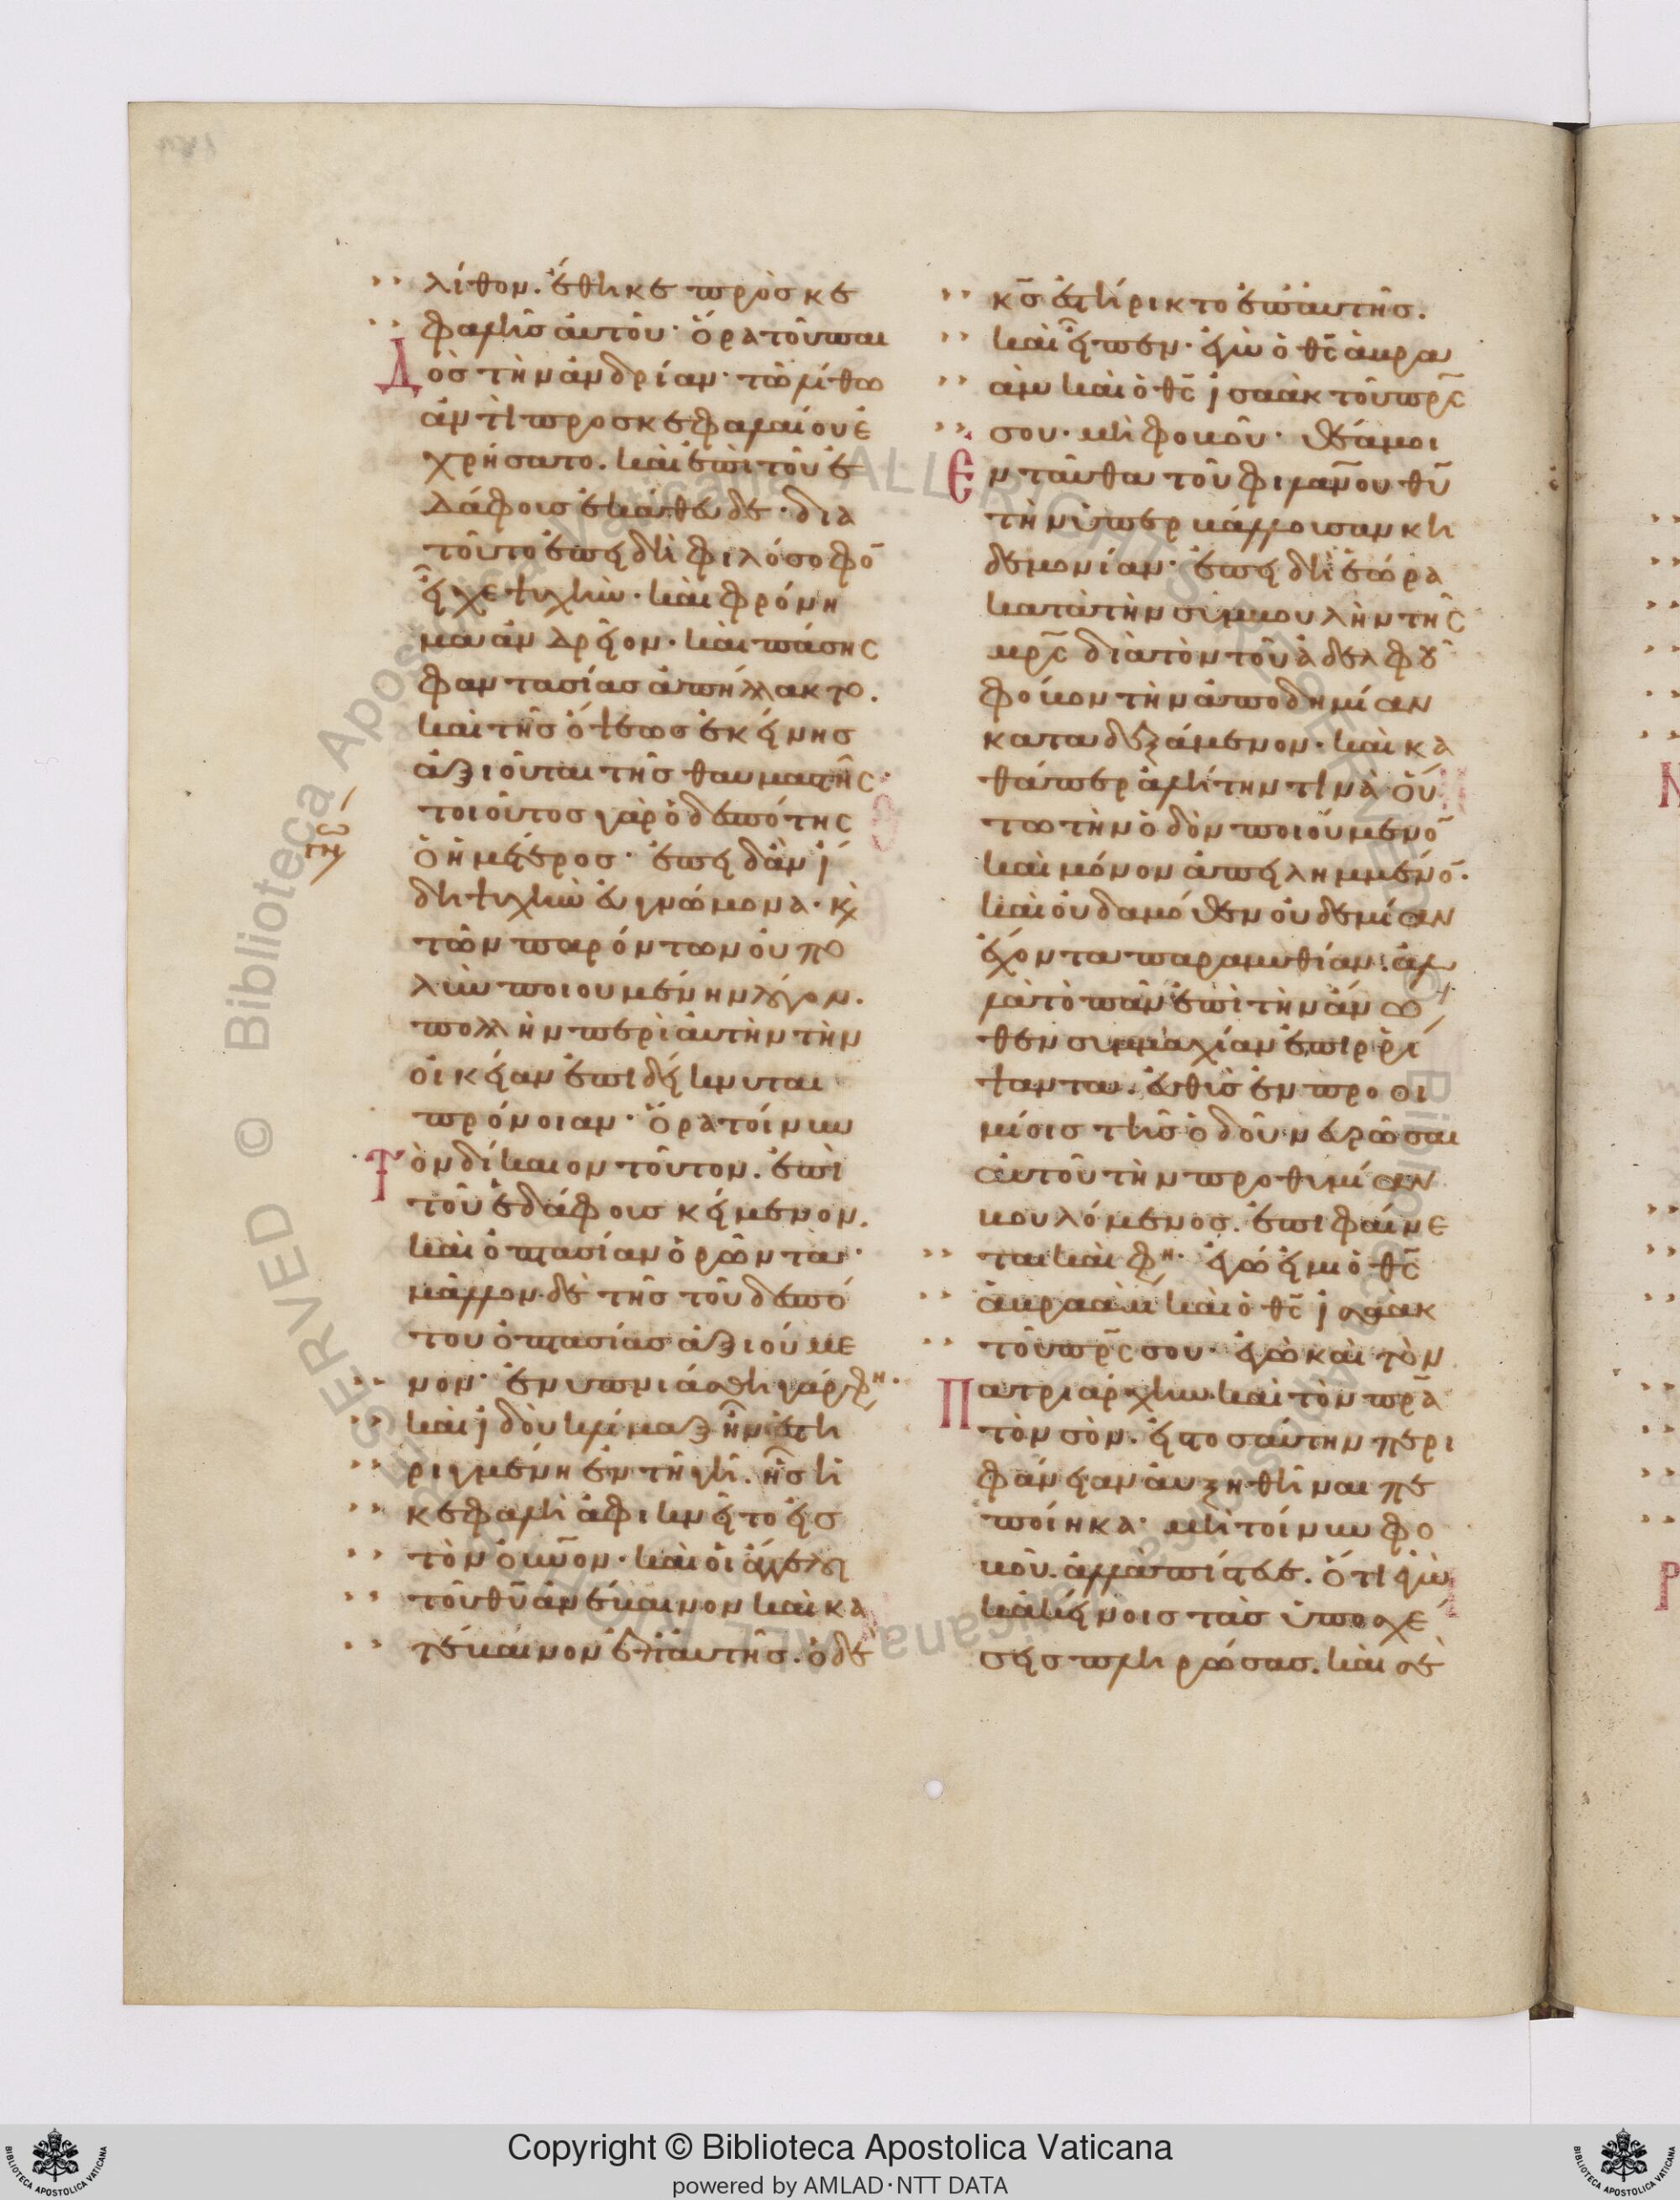 λίθον. ἔθηκε πρὸς κε
φαλῆς αὐτοῦ· ὅρα τοῦ παι
Δὸς τὴν ἀνδρίαν· τῶ λίθω
ἀντὶ προσκεφαλαίου ἐ
χρήσατο. καὶ ἐπὶ τοῦ ἐ
δάφους ἐκάθευδε· δια
τοῦτο ἐπειδὴ φιλόσοφο̅
εἶχε ψυχὴν· καὶ φρόνη
μα ἀνδρεῖον· καὶ πάσης
φαντασίας ἀπήλλακτο.
καὶ τῆς ὄψεως ἐκείνης
ἀξιοῦται τῆς θαυμαστῆς·
τοιοῦτος γὰρ ὁ δεσπότης
ὁ ἡμέτερος· ἐπειδὰν ἴ
δη ψυχὴν εὐγνώμονα· κ̀
τῶν παρόντων οὐ πο
λὺν ποιουμένην λόγον.
πολλὴν περὶ αὐτὴν τὴν
οἰκείαν ἐπιδείκνυται
πρόνοιαν· ὅρα τοίνυν
Τὸν δίκαιον τοῦτον. ἐπὶ
τοῦ ἐδάφους κείμενον.
καὶ ὀπτασίαν ὁρῶντα·
μᾶλλον δὲ τῆς τοῦ δεσπό
του ὀπτασίας ἀξιούμε
νον· ἐνυπνιάσθη γάρ φη·
καὶ ἰδοὺ κλίμαξ ἦν ἐστη
ριγμένη ἐν τῆ γῆ. ἧς ἡ
κεφαλὴ ἀφικνεῖτο εἰς
τὸν οὐν̅ον· καὶ οἱ ἄγγελοι
τοῦ θ̅υ̅ ἀνέβαινον καὶ κα
τέβαινον ἐπ' αὐτῆς. ὁ δὲ
κ̅ς̅ ἐστήρικτο ἐπ' αὐτῆς.
καὶ εἶπεν· ἐγὼ ὁ θ̅ς̅ ἀβρα
ὰμ καὶ ὁ θ̅ς̅ ἰσαὰκ τοῦ π̅ρ̅ς̅
σου· μὴ φοβοῦ· θέα μοι
Ἐνταῦθα τοῦ φιλαν̅ου θ̅υ̅
τὴν ὑπερβάλλουσαν κη
δεμονίαν· ἐπειδὴ ἑώρα
κατὰ τὴν συμβουλὴν τῆς
μ̅ρ̅ς̅ διὰ τὸν τοῦ ἀδελφοῦ
φόβον τὴν ἀποδημίαν
καταδεξάμενον· καὶ κα
θάπερ ἀλήτην τινὰ οὕ
τω τὴν ὁδὸν ποιούμενο̅
καὶ μόνον ἀπειλημμένο̅·
καὶ οὐδαμόθεν οὐδεμίαν
ἔχοντα παραμυθίαν. ἀλ
λὰ τὸ πᾶν ἐπὶ τὴν ἄνω
θεν συμμαχίαν ἐπιρρί
ψαντα. εὐθὺς ἐν προοι
μίοις τῆς ὁδοῦ νευρῶσαι
αὐτοῦ τὴν προθυμίαν
βουλόμενος. ἐπιφαίνε
ται καὶ φη· ἐγώ εἰμι ὁ θ̅ς̅
ἀβραὰμ καὶ ὁ θ̅ς̅ ἰσαὰκ
τοῦ π̅ρ̅ς̅ σου· ἐγὼ καὶ τὸν
Πατριάρχην καὶ τὸν π̅ρ̅α̅
τὸν σὸν. εἰς τοσαύτην περι
φάνειαν αὐξηθῆναι πε
ποίηκα· μὴ τοίνυν φο
βοῦ. ἀλλὰ πίστευε. ὅτι ἐγὼ
κἀκείνοις τὰς ὑποσχέ
σεις πληρώσας. καὶ σὲ